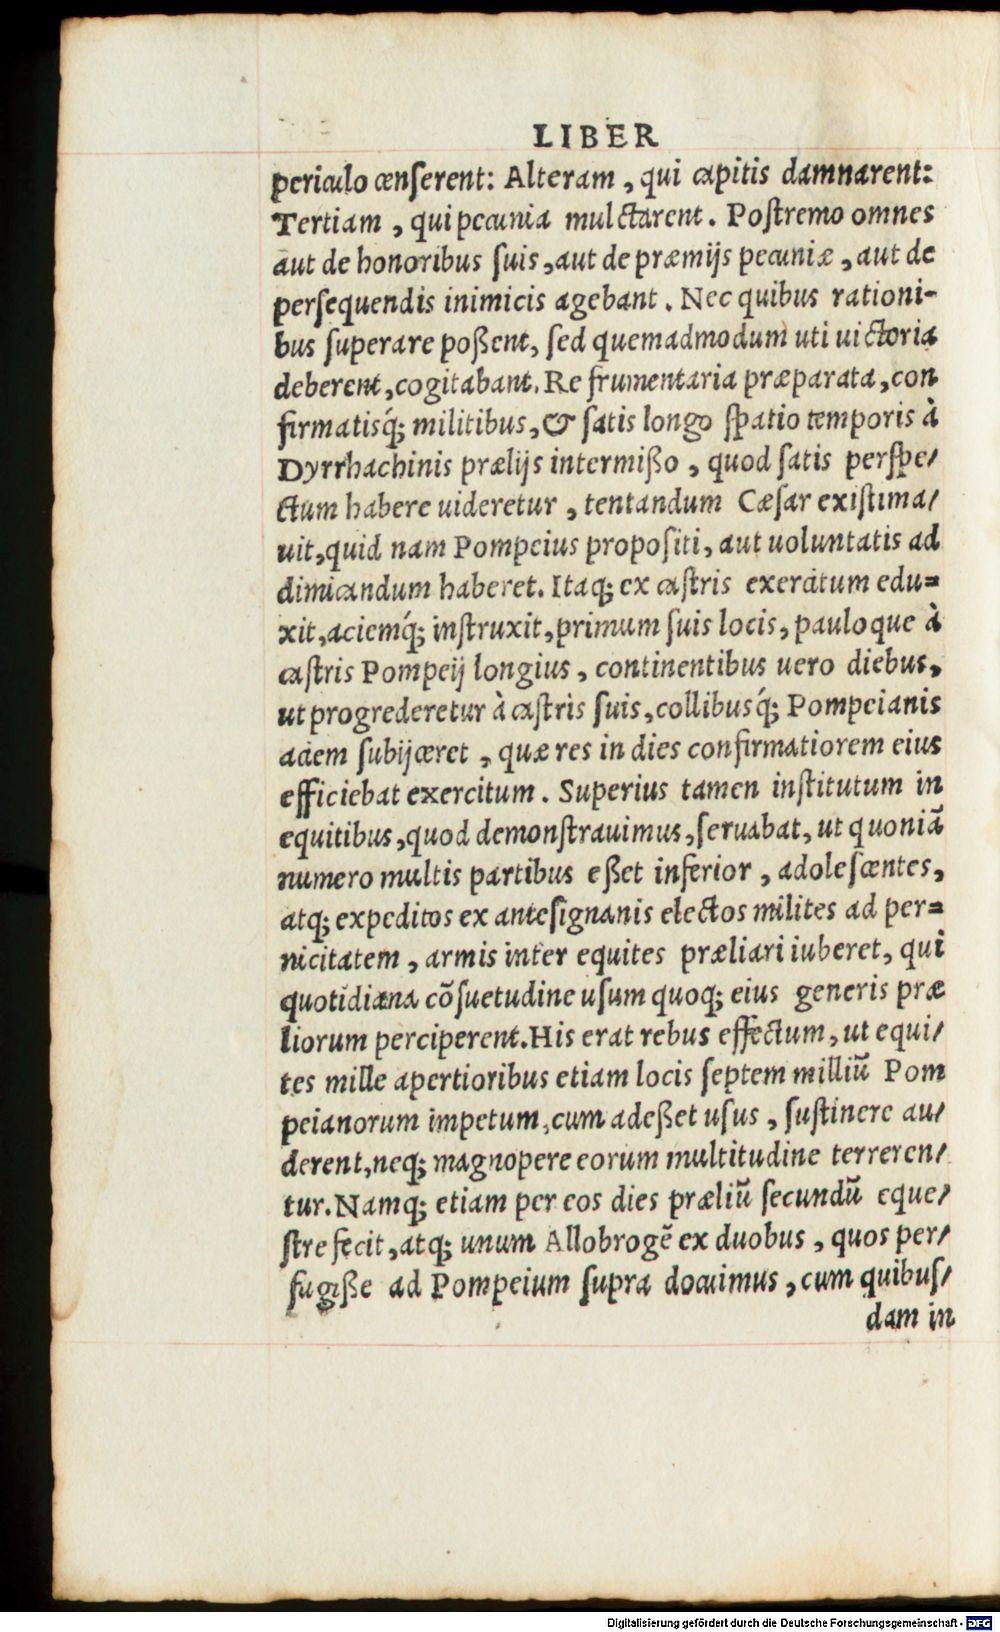 LIBER
periculo censerent: Alteram, qui capitis damnarent:
Tertiam, qui pecunia mulctarent. Postremo omnes
aut de honoribus suis, aut de præmijs pecuniæ, aut de
persequendis inimicis agebant. Nec quibus rationi-
bus superare poßent, sed quemadmodum uti uictoria
deberent, cogitabant. Re frumentaria præparata, con
firmatisq́; militibus, & satis longo spatio temporis à
Dyrrhachinis prælijs intermißo, quod satis perspe/
ctum habere uideretur, tentandum Cæsar existima/
uit, quid nam Pompeius propositi, aut uoluntatis ad
dimicandum haberet. Itaq; ex castris exercitum edu=
xit, aciemq́; instruxit, primum suis locis, pauloque à
castris Pompeij longius, continentibus uero diebus,
ut progrederetur à castris suis, collibusq́; Pompeianis
aciem subijceret, quæ res in dies confirmatiorem eius
efficiebat exercitum. Superius tamen institutum in
equitibus, quod demonstrauimus, seruabat, ut quoniā
numero multis partibus eßet inferior, adolescentes,
atq; expeditos ex antesignanis electos milites ad per=
nicitatem, armis inter equites præliari iuberet, qui
quotidiana cōsuetudine usum quoq; eius generis præ
liorum perciperent. His erat rebus effectum, ut equi/
tes mille apertioribus etiam locis septem milliū Pom
peianorum impetum, cum adeßet usus, sustinere au/
derent, neq; magnopere eorum multitudine terreren/
tur. Namq; etiam per eos dies præliū secundū eque/
stre fecit, atq; unum Allobrogē ex duobus, quos per/
fugiße ad Pompeium supra docuimus, cum quibus/
dam in
Digitalisierung gefördert durch die Deutsche Forschungsgemeinschaft - DFG